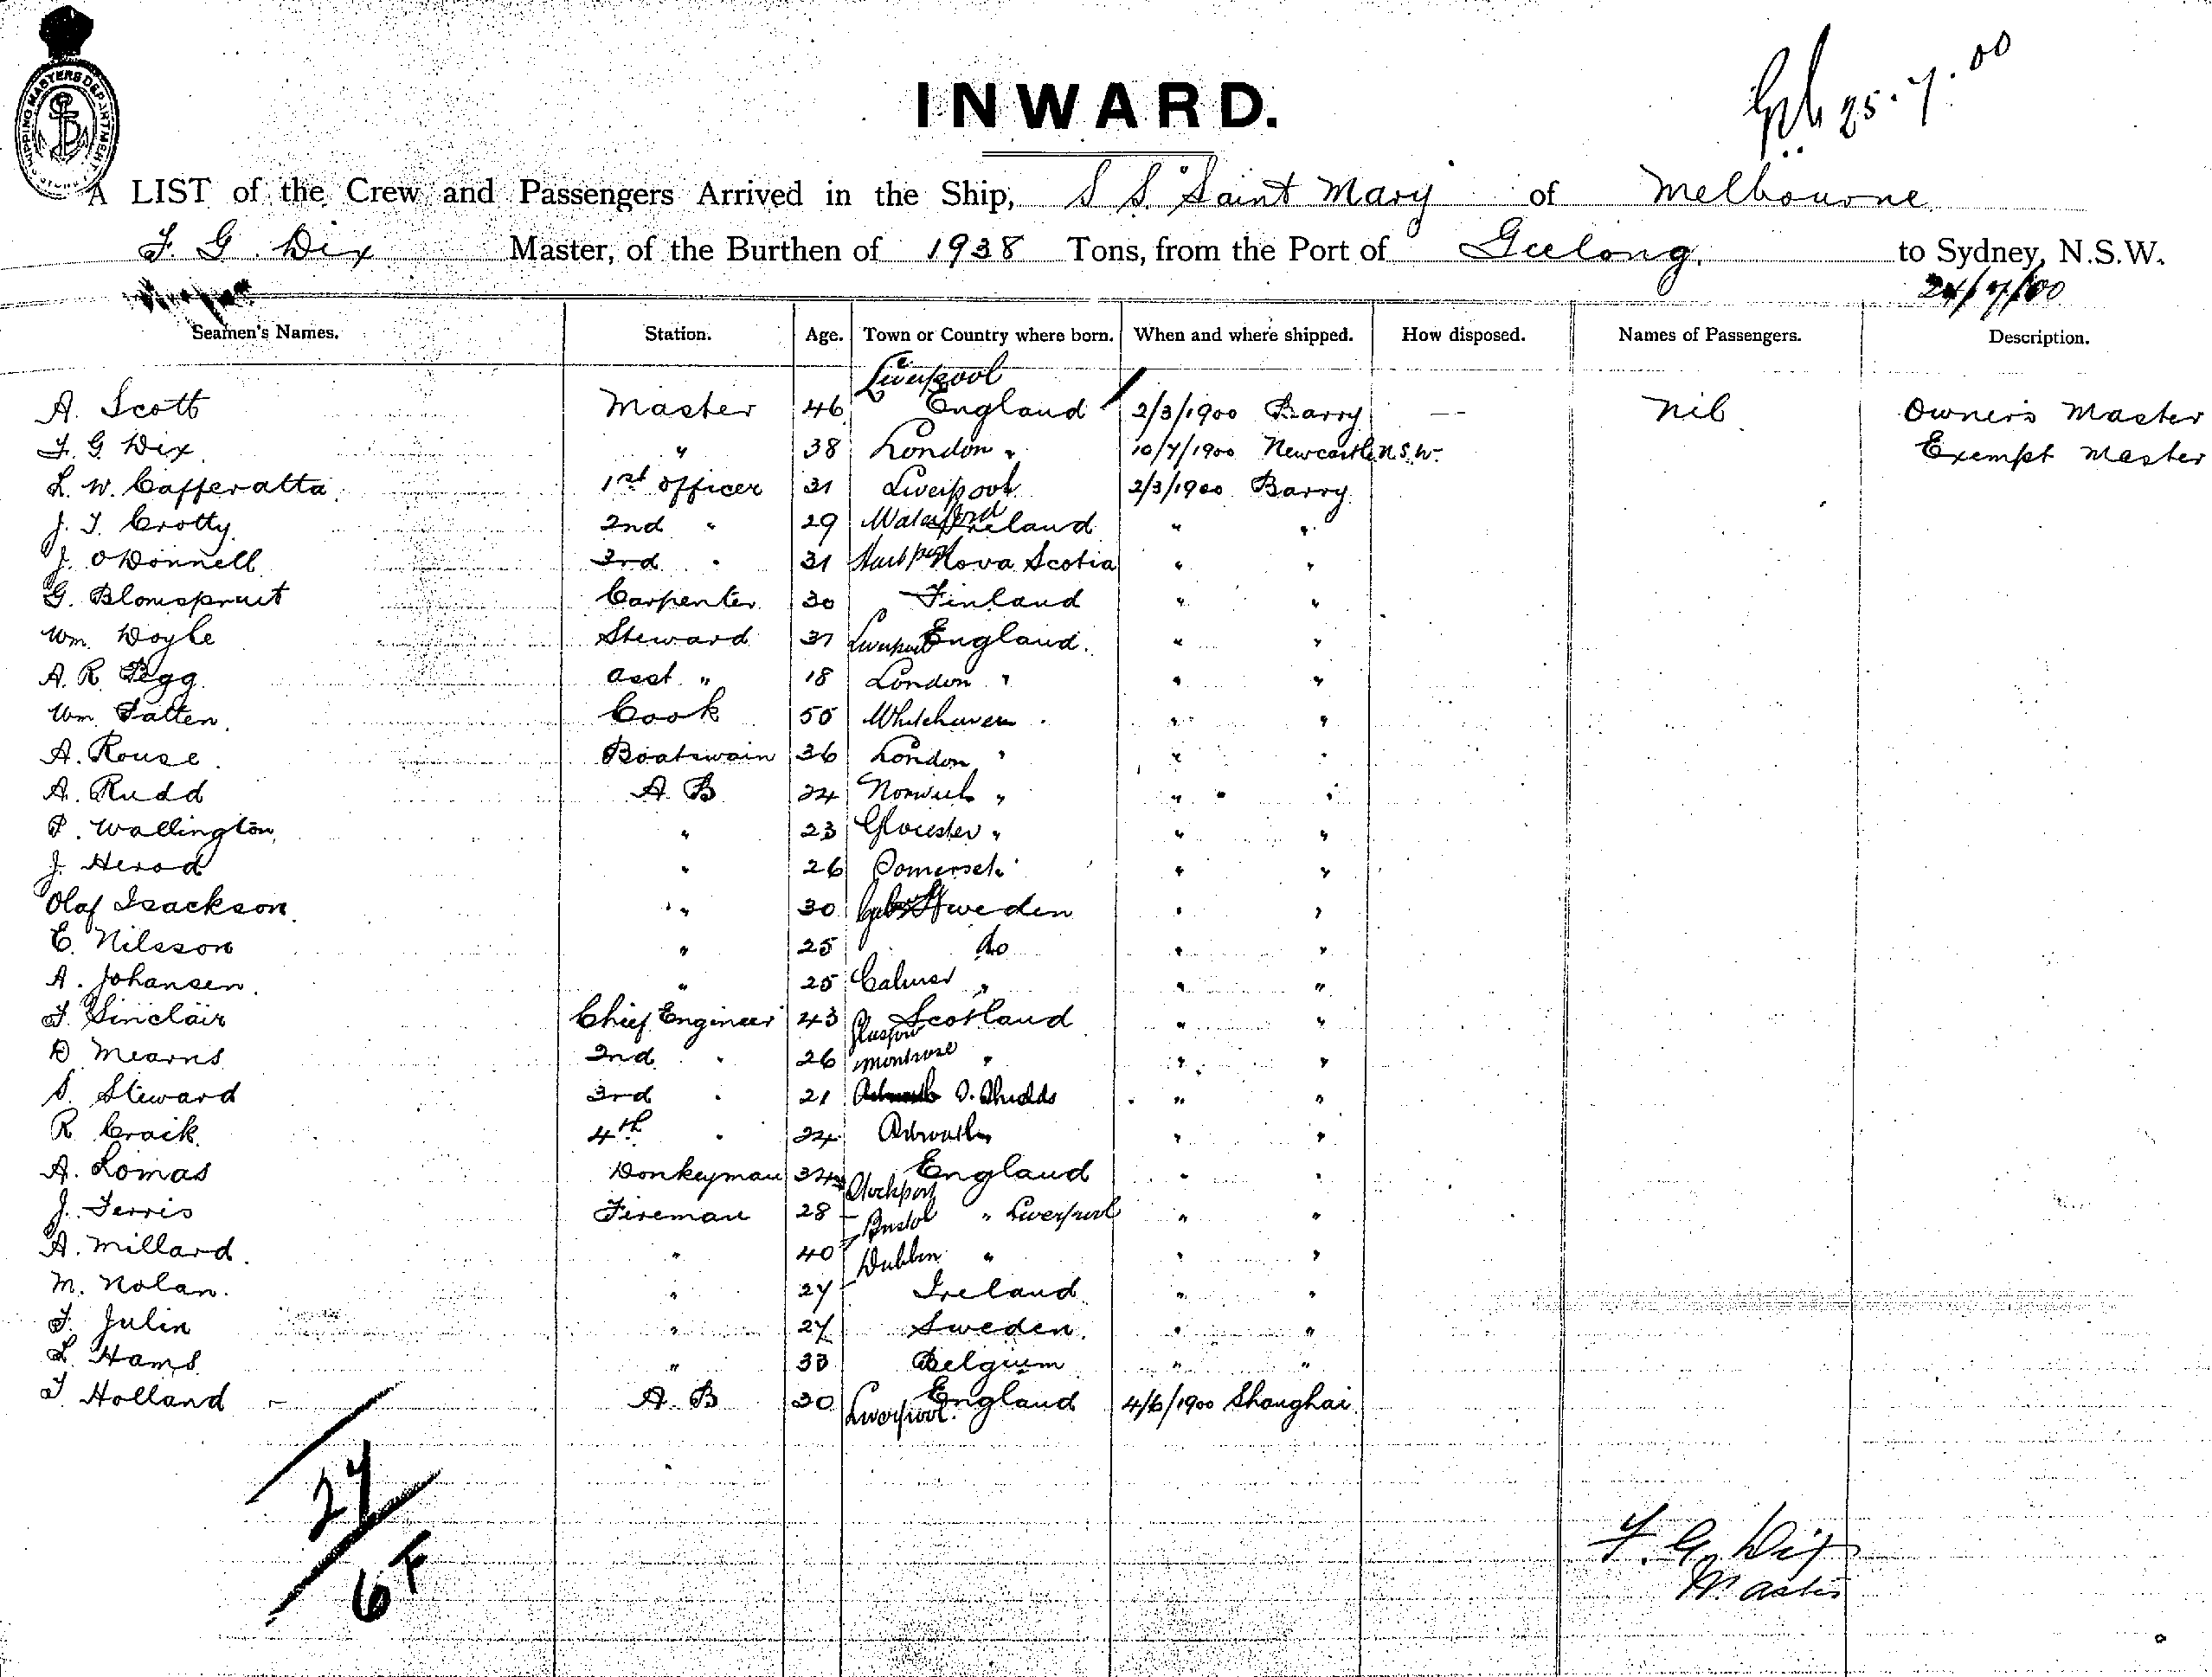 SHIPPING MASTERS DEPARTMENT
25.7.00
INWARD.
A LIST of the Crew and Passengers Arrived in the Ship, S S. Saint Mary of Melbourne
F. G. Dix Master, of the Burthen of 1938 Tons, from the Port of Geelong. to Sydney, N.S.W.
24/7/00
Seamen's Names. Station. Age. Town or Country where born. When and where shipped. How disposed. Names of Passengers. Description.
Liverpool
A. Scott Master 46 England 2/3/1900 Barry — Nil Owner's Master
F. G Dix " 38 London " 10/7/1900 Newcastle N.S.W. Exempt Master
L. W. Cafferatta 1st Officer 31 Liverpool 2/3/1900 Barry
J. T. Crotty 2nd " 29 Waterford Ireland " "
J. O'Donnell 3rd " 31 Nova Scotia " "
G. Carpenter 30 Finland " "
Wm. Doyle Steward 37 Liverpool England. " "
A. R. Pegg Asst. " 18 London " " "
Wm. Patten Cook 50 Whitehaven " " "
A. Rouse Boatswain 36 London " " "
A. Rudd A. B 24 Norwich " " "
P. Wallington " 23 Glocester " " "
J. Herod " 26 Somerset " " "
Olaf Isackson " 30 Sweden " "
C. Nilsson " 25 do " "
A. Johansen " 25 Calmar " " "
F. Sinclair Chief Engineer 43 Glasgow Scotland " "
D. Mearns 2nd " 26 Montrose " " "
S. Steward 3rd " 21 S. Shields " "
R Craik 4th " 24 " "
A. Lomas Donkeyman 34 Stockport England " "
J. Ferris Fireman 28 Bristol " Liverpool " "
A. Millard " 40 Dublin " " "
M. Nolan. " 27 Ireland " "
F. Julin " 27 Sweden. " "
L. Hams " 33 Belgium " "
T Holland A. B 30 Liverpool. England 4/6/1900 Shanghai
27
F. G. Dix
Master